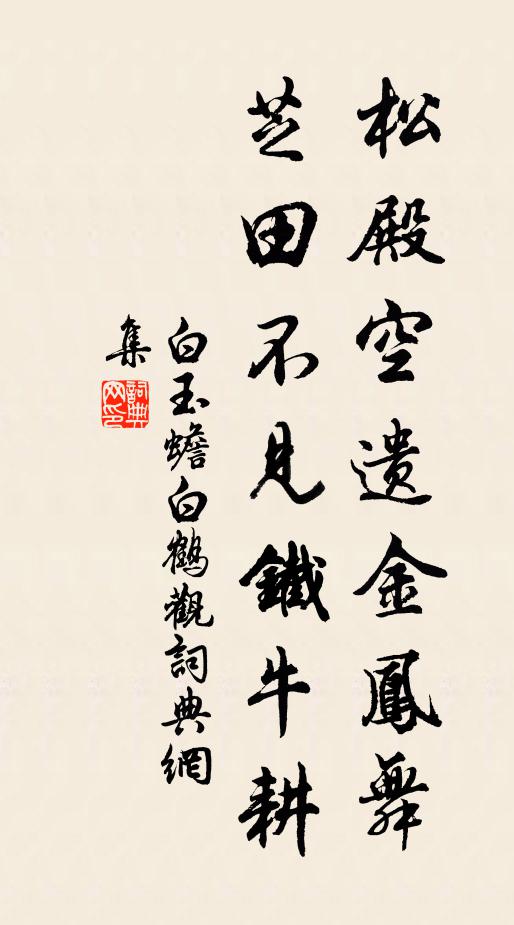 松殿空遺金鳳舞
芝田不見鐵牛耕
白玉蟾白鶴觀詞典網
集
詞典
网印